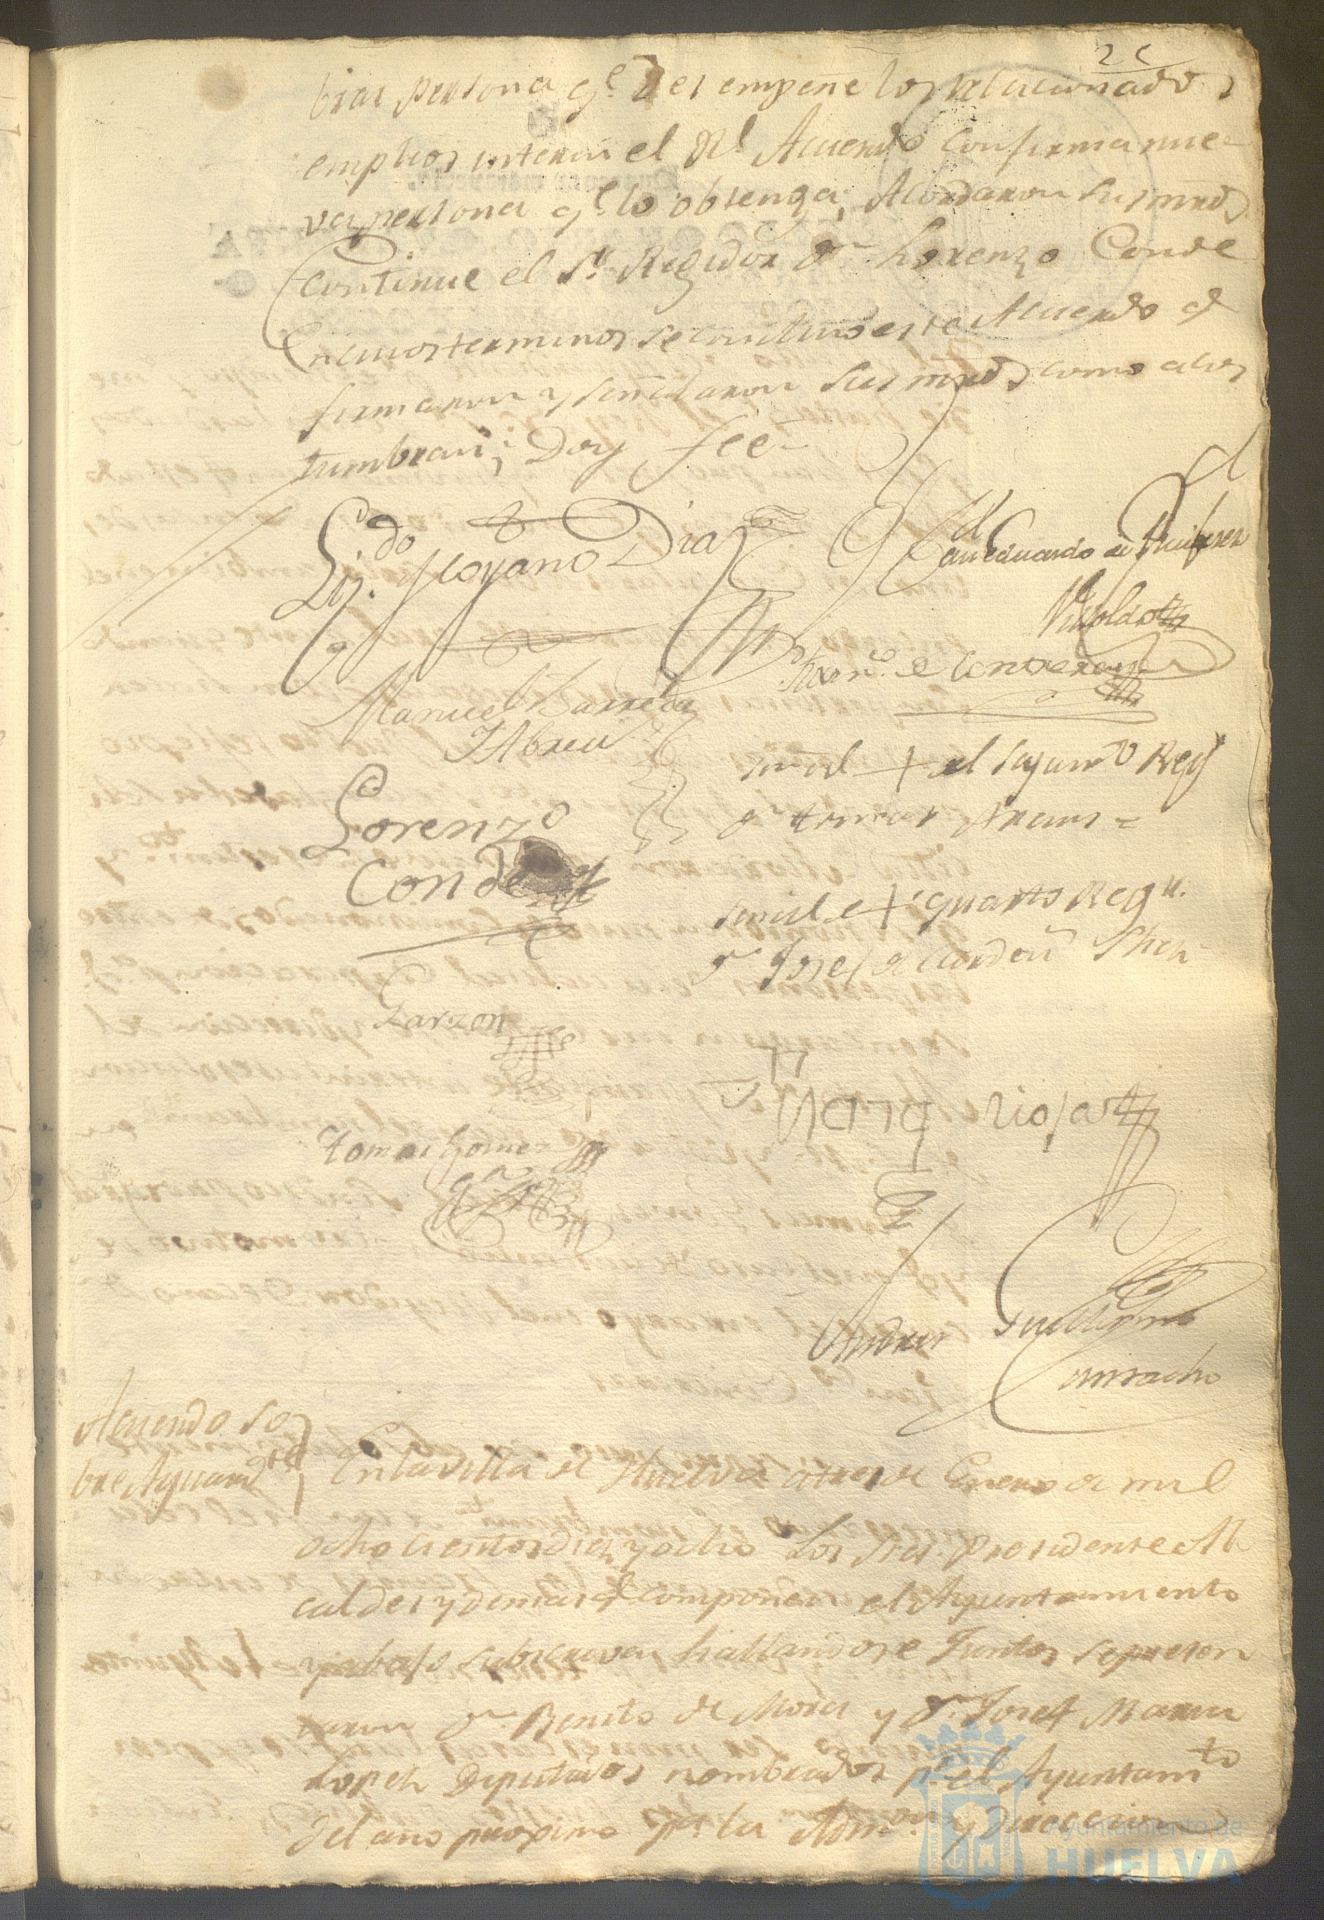 brar persona q.e desempeñe los relacionados
empleos interin el Rl. Acuerdo confirma nue=
va persona q.e lo obtenga; Acordaron sus mrds.
Continue el Sr. Regidor Dn. Lorenzo Conde
En cuios terminos se concluió este Acuerdo q.e
firmaron y señalaron sus mrds. como acos
tumbran; Doy fee=
Liz.do Moyano Diaz
Juan Eduardo de
Manuel Barreda
Y Abreu
Fran.co de Contreras
Señal + del segundo Reg.r
Dn. Tomas
Lorenzo
Conde
Señal de + quarto Reg.r
Dn. Josef
Garzon
Riojas
Tomas Gomez
Andres Guillermo
Camacho
Acuerdo so
bre Aguard.te
En la villa de Huelva a tres de Enero de mil
ocho cientos diez y ocho Los Sres. Presidente Al
caldes y demas q.e componen el Ayuntamiento
y abajo subscriven hallandose Juntos se presen
taron Dn. Benito de Mora y Dn. Josef Maria
Lopez Diputados nombrados p.r el Ayuntam.to
del año proximo p.a la Adm.on y Direccion
Ayuntamiento de
HUELVA